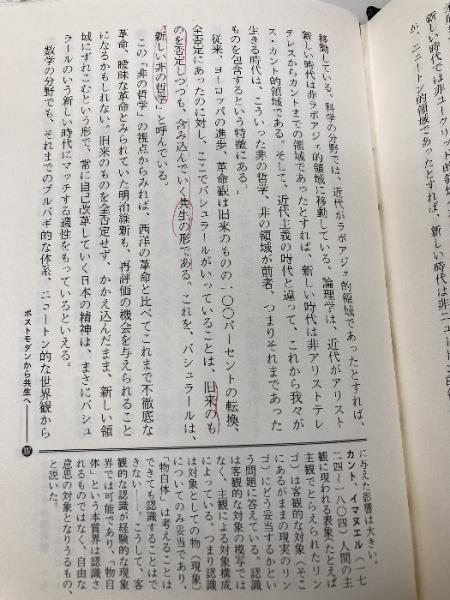 新しい時代では非ユークリッド的領域
が、ニュートン的領域であったとすれば、新しい時代は非
移動している。科学の分野では、近代がラボアジェ的領域であったとすれば、
新しい時代は非ラボアジェ的領域に移動している。論理学は、近代がアリスト
テレスからカントまでの領域であったとすれば、新しい時代は非アリストテレ
ス・カント的領域である。そして、近代主義の時代と違って、これから我々が
生きる時代は、こういった非の哲学、非の領域が前者、つまりそれまであった
ものを包含するという特徴にある。
従来、ヨーロッパの進歩、革命観は旧来のものの一〇〇パーセントの転換、
全否定にあったのに対し、ここでバシュラールがいっていることは、旧来のも
のを否定しつつも、含み込んでいく共生の形である。これを、バシュラールは、
新しい非の哲学、と呼んでいる。
この「非の哲学」の視点からみれば、西洋の革命と比べてこれまで不徹底な
革命、曖昧な革命とみられていた明治維新も、再評価の機会を与えられること
になるかもしれない。旧来のものを全否定せず、かかえ込んだまま、新しい領
域にずれこむという形で、常に自己改革していく日本の精神は、まさにバシュ
ラールのいう新しい時代にマッチする適性をもっているといえる。
数学の分野でも、それまでのブルバギ的な体系、ニュートン的な世界観から
ポストモダンから共生へ
に与えた影響は大きい。
カント、イマヌエル（一七
二四〜一八〇四）人間の主
観に現われる表象（たとえば
主観でとらえられたリン
ゴ）は客観的な対象（そこ
にあるがままの現実のリン
ゴ）にどう妥当するかとい
う問題に答えている。認識
は客観的な対象の模写では
なく、主観による対象構成
によっている。つまり認識
は対象としての物（現象）
についてのみ妥当であり、
「物自体」は考えることは
できても認識することはで
きない――。こうして、客
観的な認識が経験的な現象
界では可能であり、「物自
体」という本質界は認識さ
れるものではなく、自由な
意思の対象となりうるもの、
と説いた。